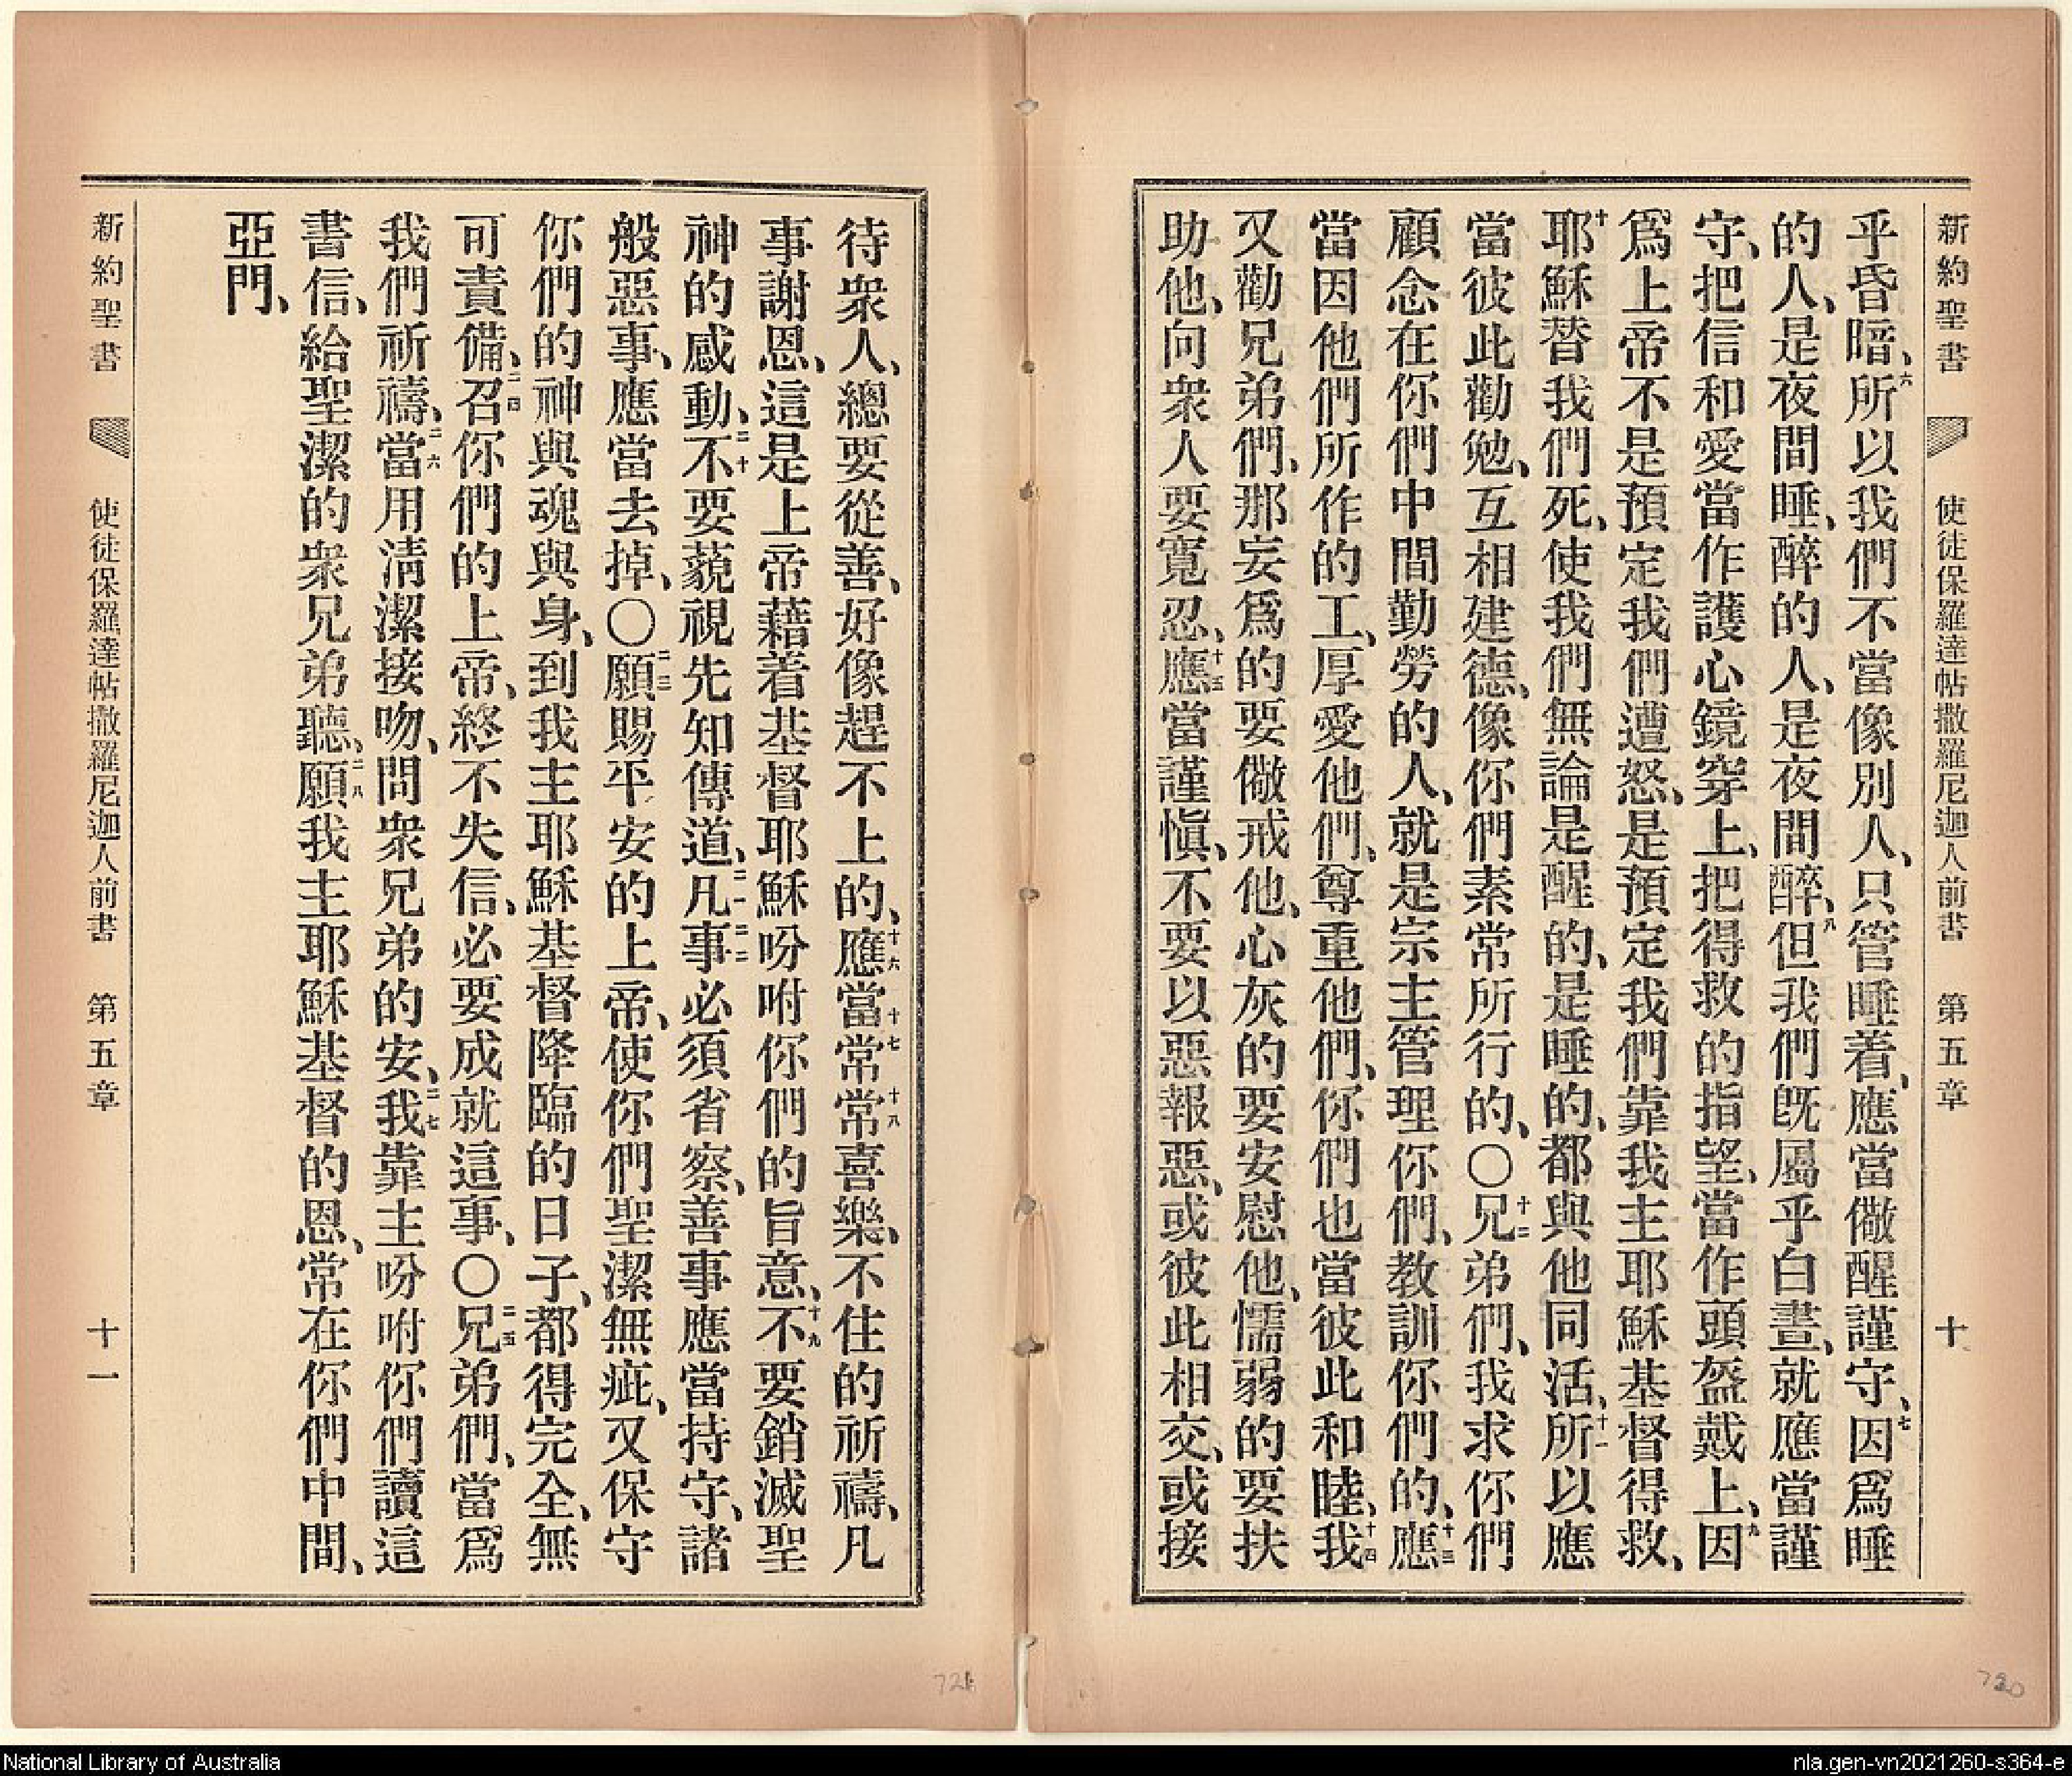 新約聖書 使徒保羅達帖撒羅尼迦人前書 第五章 十
乎昏暗、六所以我們不當像別人、只管睡着、應當儆醒謹守、七因爲睡
的人、是夜間睡、醉的人、是夜間醉、八但我們旣屬乎白晝、就應當謹
守、把信和愛當作護心鏡穿上、把得救的指望、當作頭盔戴上、九因
爲上帝不是預定我們遭怒、是預定我們靠我主耶穌基督得救、
十耶穌替我們死、使我們無論是醒的、是睡的、都與他同活、十一所以應
當彼此勸勉、互相建德、像你們素常所行的、〇十二兄弟們、我求你們
顧念在你們中間勤勞的人、就是宗主管理你們、教訓你們的、十三應
當因他們所作的工、厚愛他們、尊重他們、你們也當彼此和睦、十四我
又勸兄弟們、那妄爲的要儆戒他、心灰的要安慰他、懦弱的要扶
助他、向衆人要寬忍、十五應當謹愼、不要以惡報惡、或彼此相交、或接
待衆人、總要從善、好像趕不上的、十六應當十七常十八常喜樂、不住的祈禱、凡
事謝恩、這是上帝藉着基督耶穌吩咐你們的旨意、十九不要銷滅聖
神的感動、二十不要藐視先知傳道、二一凡二二事必須省察、善事應當持守、諸
般惡事、應當去掉、〇二三願賜平安的上帝、使你們聖潔無疵、又保守
你們的神與魂與身、到我主耶穌基督降臨的日子、都得完全、無
可責備、二四召你們的上帝、終不失信、必要成就這事、〇二五兄弟們、當爲
我們祈禱、二六當用淸潔接吻、問衆兄弟的安、二七我靠主吩咐你們讀這
書信、給聖潔的衆兄弟聽、二八願我主耶穌基督的恩、常在你們中間、
亞門、
新約聖書 使徒保羅達帖撒羅尼迦人前書 第五章 十一
721
720
National Library of Australia
nla.gen-vn2021260-s364-e